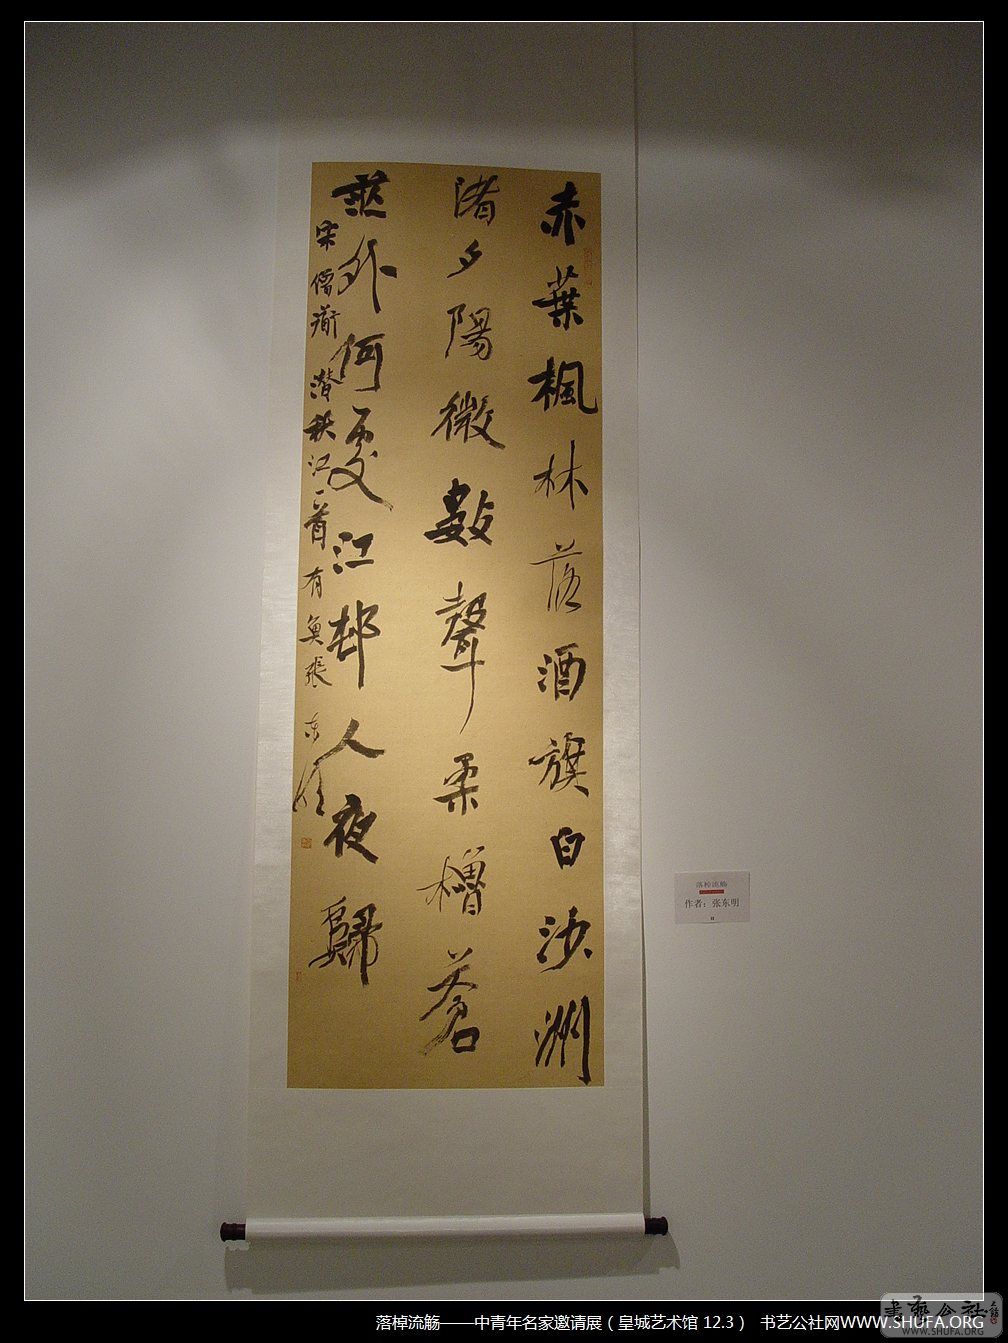 赤葉楓林落酒旗白沙洲
渚夕陽微數聲柔櫓蒼
茫外何處江邨人夜歸
宋僧衟潛秋江一首有魚張东明
落棹流觞
作者：张东明
落棹流觞——中青年名家邀请展（皇城艺术馆 12.3） 书艺公社网WWW.SHUFA.ORG
書藝公社
WWW.SHUFA.ORG